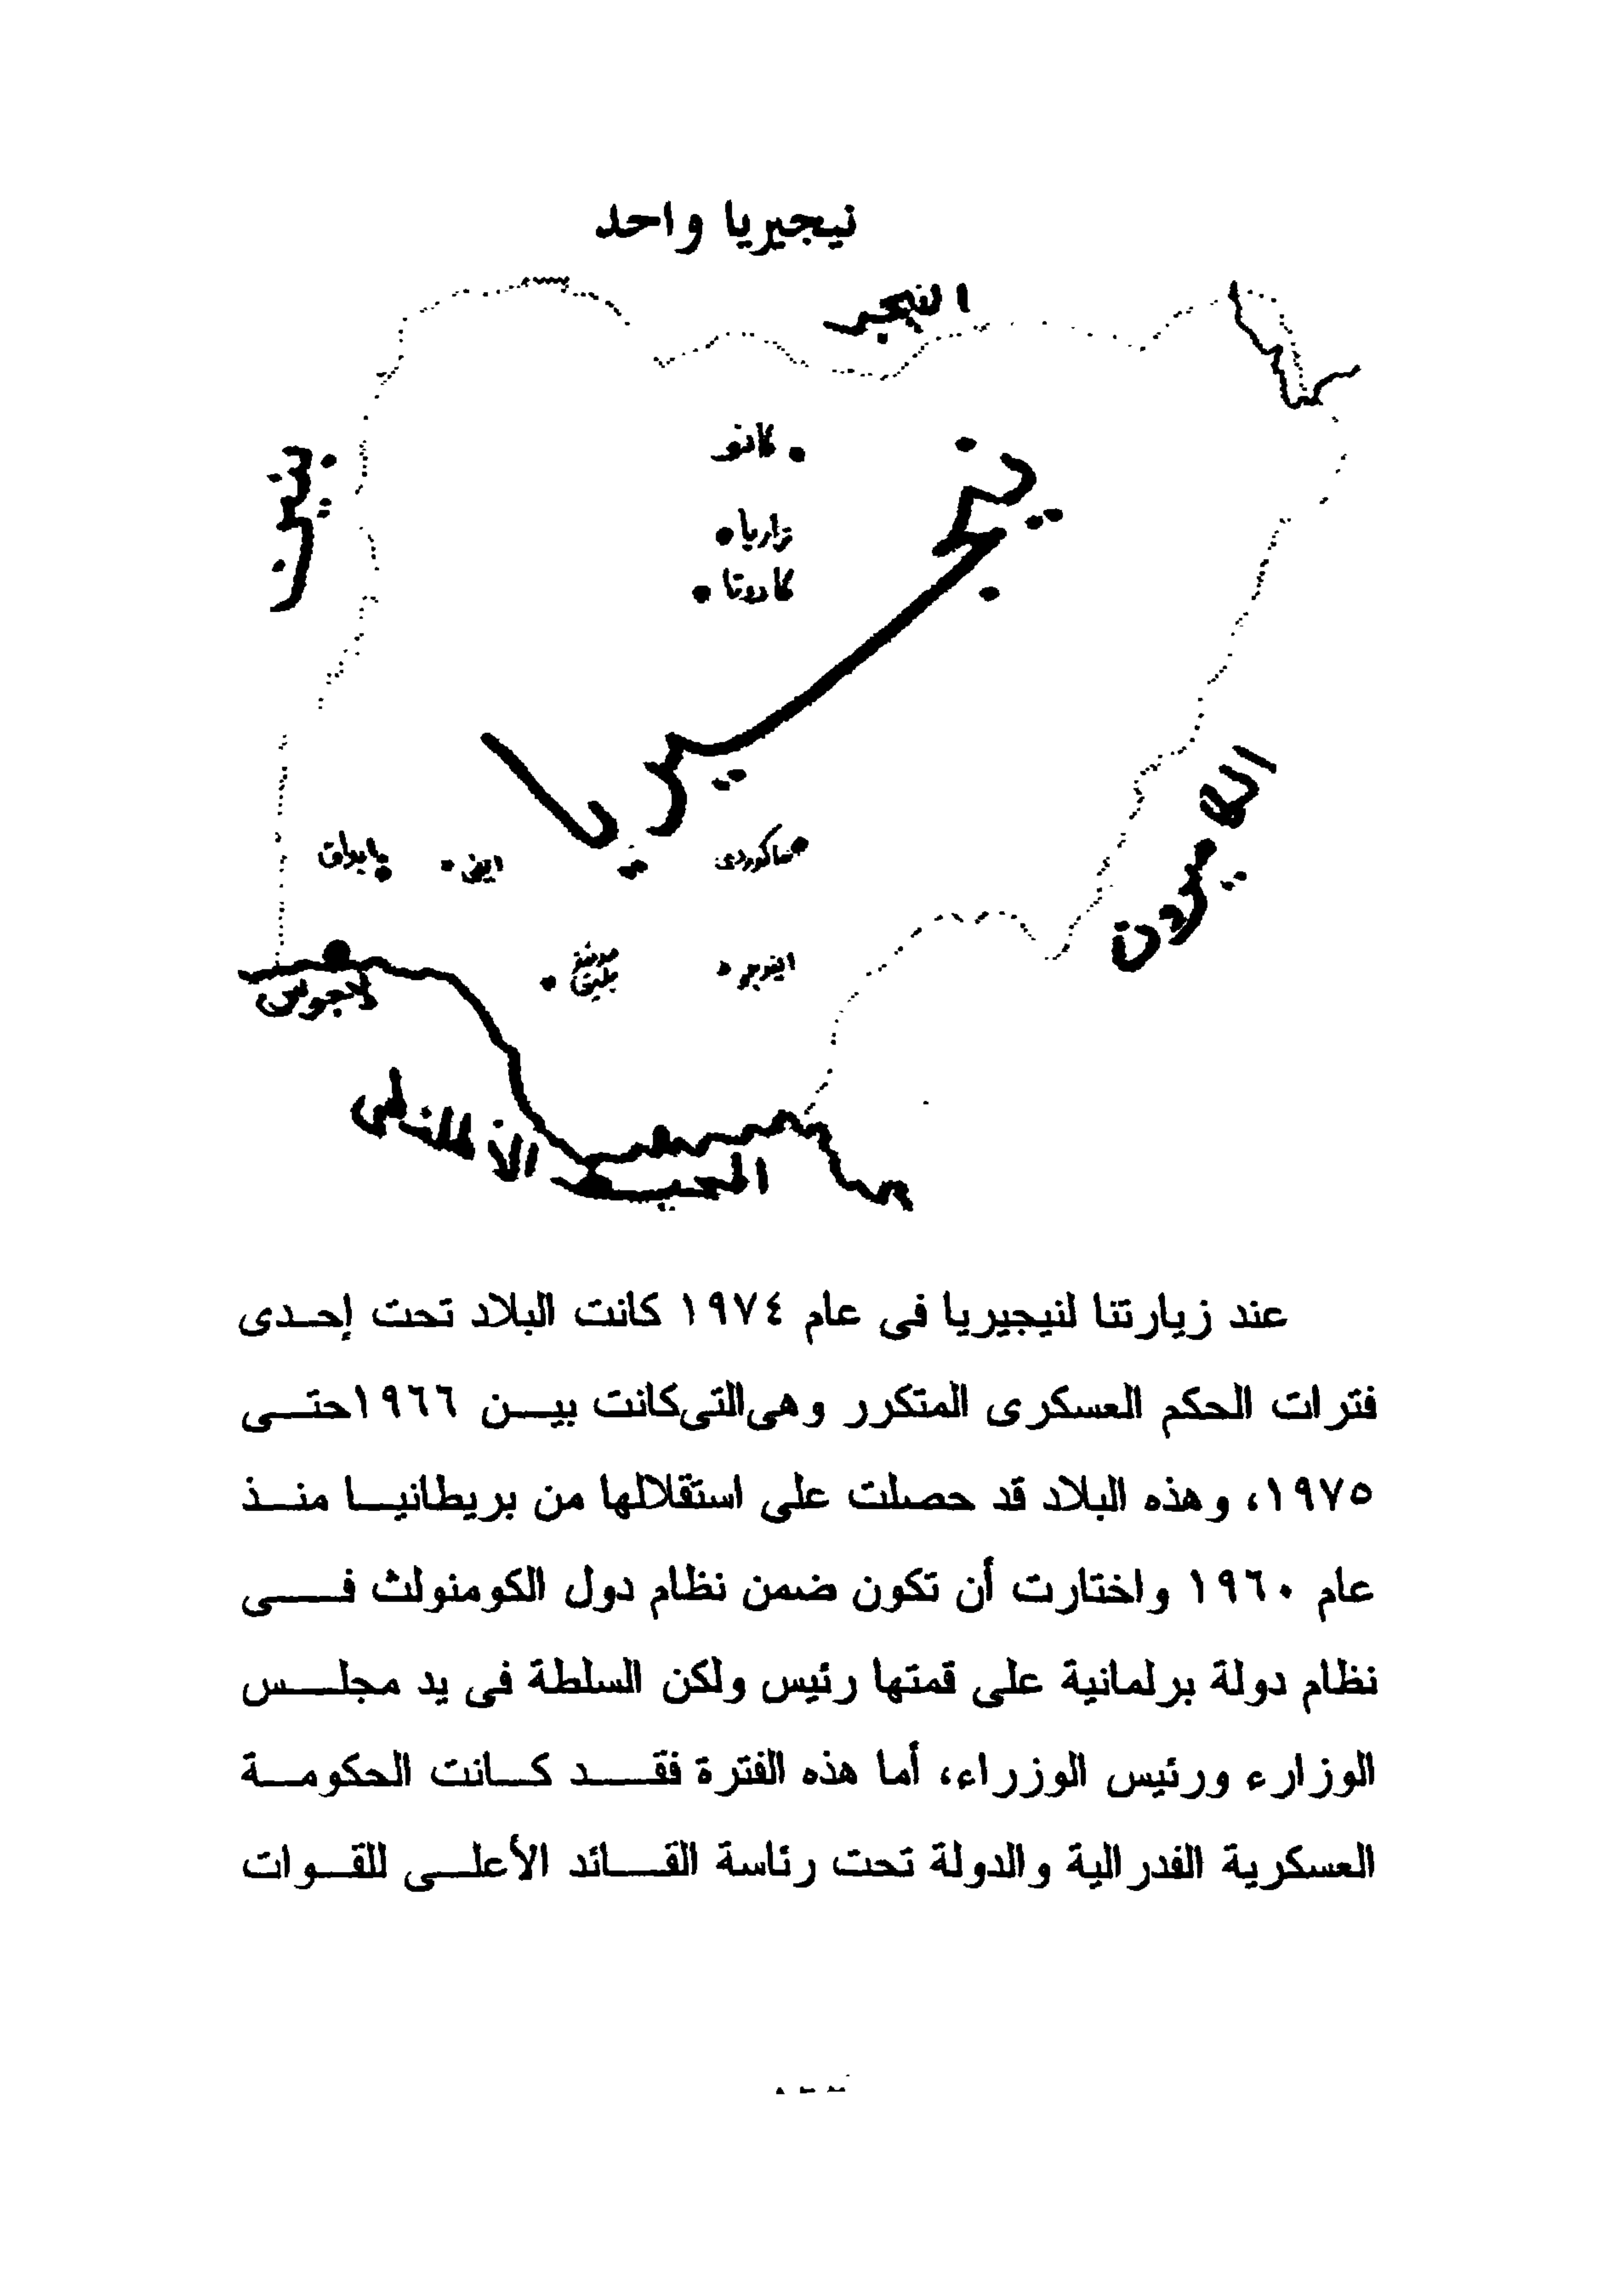 نيجيريا واحد
النيجر
بنين
كانو
زاريا
كادونا
نيجيريا
الكاميرون
ماكوردى
ايفى
لاجوس
المحيط الأطلنطى
عند زيارتنا لنيجيريا فى عام ١٩٧٤ كانت البلاد تحت إحـدى
فترات الحكم العسكرى المتكرر وهى التى كانت بيـن ١٩٦٦ حتـى
١٩٧٥، وهذه البلاد قد حصلت على استقلالها من بريطانيـا منـذ
عام ١٩٦٠ واختارت أن تكون ضمن نظام دول الكومنولث فـى
نظام دولة برلمانية على قمتها رئيس ولكن السلطة فى يد مجلـس
الوزارء ورئيس الوزراء، أما هذه الفترة فقـد كـانت الحكومـة
العسكرية الفدرالية والدولة تحت رئاسة القـائد الأعلـى للقـوات